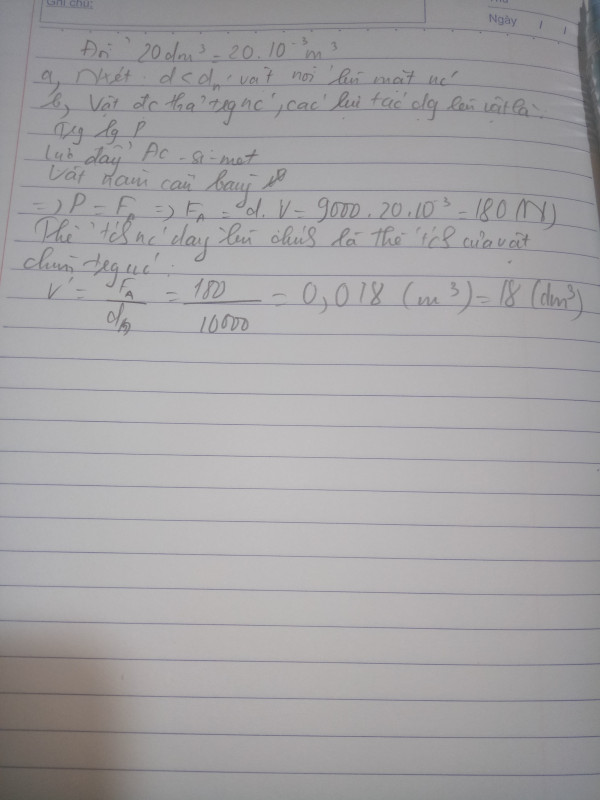 Ghi chú:
Ngày
Đổi 20dm³ = 20.10⁻³m³
a, Nhét d < dₙ, vật nổi lên mặt nc'
b, Vật đc thả trg nc', các lực tác dg lên vật là:
Trg lg P
Lực đẩy Ac-si-met
Vật nằm cân bằng
=> P = F_A => F_A = d.V = 9000.20.10⁻³ = 180 (N)
Thể tích nc' dâng lên chính là thể tích của vật
chìm trg nc':
V' = F_A/dₙ = 180/10000 = 0,018 (m³) = 18 (dm³)